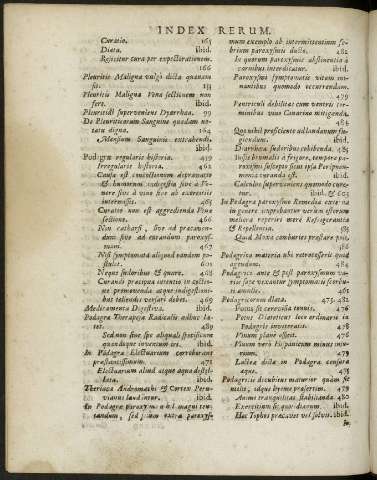 INDEX RERUM.
Curatio. 165
Diæta. ibid.
Rejicitur cura per expectorationem.
166
Pleuritis Maligna vulgò dicta quænam
sit. 151
Pleuritis Maligna Venæ sectionem non
fert. ibid.
Pleuritidi superveniens Diarrhœa. 99
De Pleuriticorum Sanguine quædam no-
tatu digna. 164
Mensum Sanguinis extrahendi.
ibid.
Podagræ regularis historia. 459
Irregularis historia. 462
Causa est concoctionum depravatio
& humorum
ne sive à vino sive ab exercitii
intermissi. 465
Curatio non est aggredienda Venæ
sectione. 466
Non catharsi, sive ad præcaven-
dum sive ad curandum paroxys-
mum. 467
Nisi symptomata aliquod eandem po-
stulet. 601
Neque sudoribus & quare. 468
Curandi præcipua intentio in rectio-
ne promovenda atque indigestioni-
bus tollendis versari debet. 469
Medicamenta Digestiva. ibid.
Podagræ Therapeja Radicalis adhuc la-
tet. 489
Sed non sine spe aliquali specificum
quandoque inventum iri. ibid.
In Podagra Electuarium corroborans
præstantissimum. 471
Electuarium aliud atque aqua destil-
lata. ibid.
Theriaca Andromachi & Cortex Peru-
vianus laudantur. ibid.
In Podagra paroxysmo nil magni ten-
tandum, sed in extra paroxys-
mum exemplo ab intermittentium fe-
brium paroxysmis ducto. 482
In quorum paroxysmis abstinentia à
carnibus indicitur. ibid.
Paroxysmi symptomatis vitam mi-
nantibus quomodo occurrendum.
479
Ventriculi debilitas cum ventris tor-
minibus vino Canarino mitiganda.
484
Qui nihil proficiente ad laudanum fu-
giendum. ibid.
Diarrhœa sudoribus cohibenda. 485
Instar brumali à frigore, tempore pa-
roxysmi suscepto Peripneu-
monia curanda est. ibid.
Calculus superveniens quomodo cure-
tur. ibid. & 603
In Podagra paroxysmo Remedia externa
in genere exprobantur verùm externa
meliora reperiri merè Refrigerantia
& Repellentia. 585
Quid Moxa comburiens præstare possit.
486
Podagrica materia ubi retrocesserit quid
agendum. 484
Podagrici ante & post paroxysmum va-
riis sæpè vexantur symptomatis scorbu-
ti anxietis. 461
Podagricorum diæta. 475. 482
Potus sit cerevisia tenuis. 476
Potus Diæteticus loco ordinarii in
Podagris inveteratis. 478
Vinum planè officit. 476
Vinum verò Hispanicum minus innu-
rium. 479
Lactea diæta in Podagra censura
æque. 475
Podagricis decubitus maturior quàm sit
noctis, idque hyeme præsertim. 479
Animi tranquillitas stabilienda. 480
Exercitium sit quotidianum. ibid.
Hoc Tophos præcavet vel solvit. ibid.
In